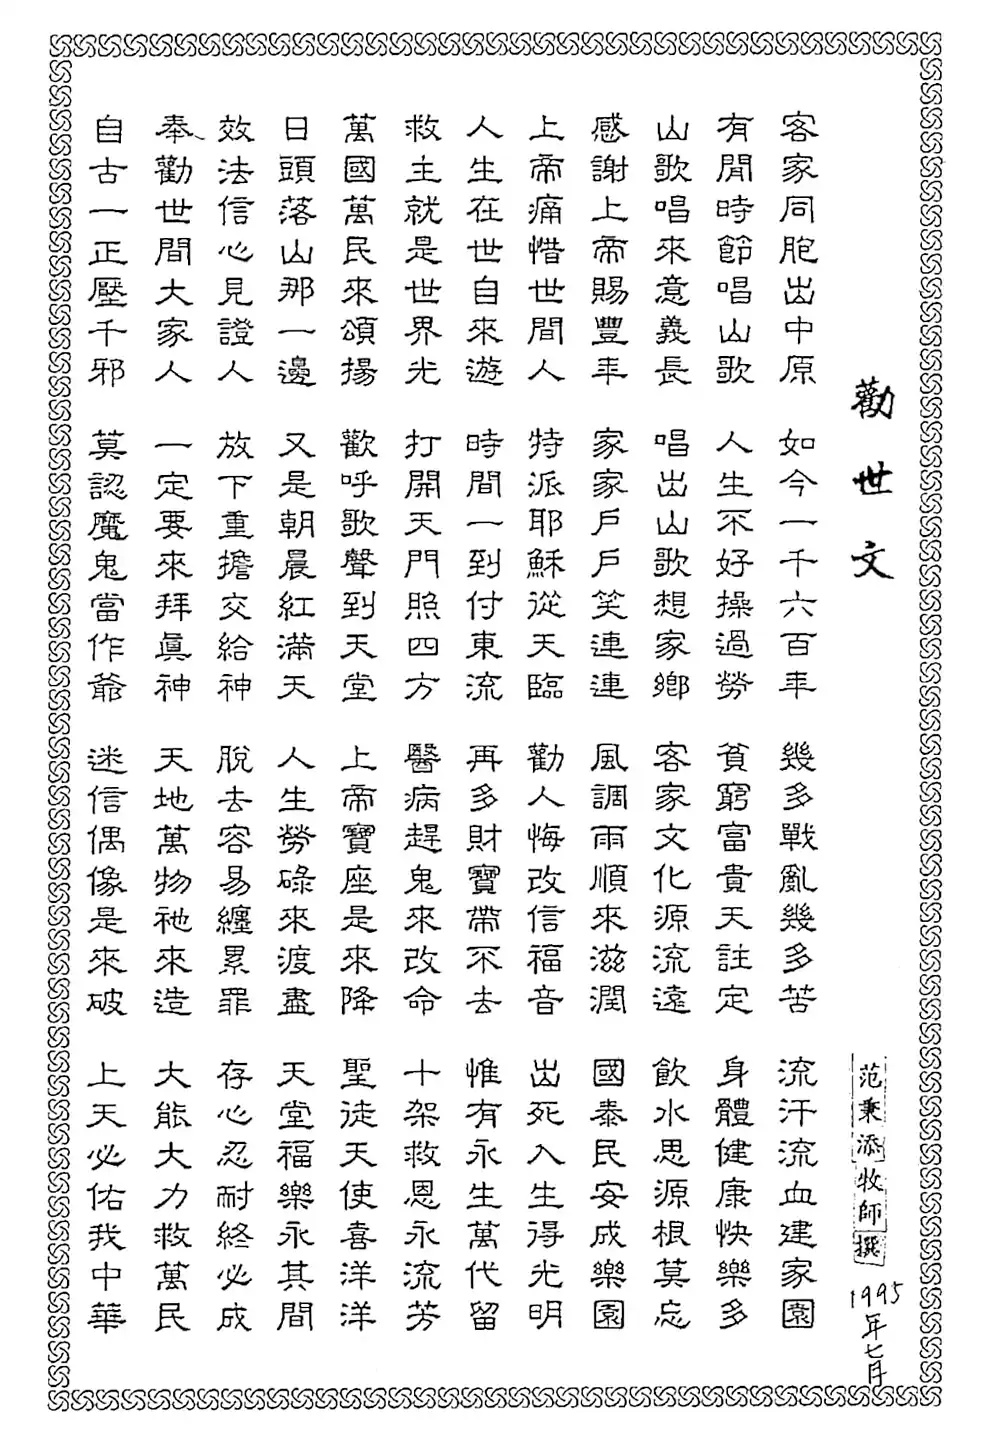 勸世文
范秉添牧師撰 1995年七月
客家同胞出中原 如今一千六百年 幾多戰亂幾多苦 流汗流血建家園
有閒時節唱山歌 人生不好操過勞 貧窮富貴天註定 身體健康快樂多
山歌唱來意義長 唱出山歌想家鄉 客家文化源流遠 飲水思源根莫忘
感謝上帝賜豐年 家家戶戶笑連連 風調雨順來滋潤 國泰民安成樂園
上帝痛惜世間人 特派耶穌從天臨 勸人悔改信福音 出死入生得光明
人生在世自來遊 時間一到付東流 再多財寶帶不去 惟有永生萬代留
救主就是世界光 打開天門照四方 醫病趕鬼來改命 十架救恩永流芳
萬國萬民來頌揚 歡呼歌聲到天堂 上帝寶座是來降 聖徒天使喜洋洋
日頭落山那一邊 又是朝晨紅滿天 人生勞碌來渡盡 天堂福樂永其間
效法信心見證人 放下重擔交給神 脫去容易纏累罪 存心忍耐終必成
奉勸世間大家人 一定要來拜真神 天地萬物祂來造 大能大力救萬民
自古一正壓千邪 莫認魔鬼當作爺 迷信偶像是來破 上天必佑我中華